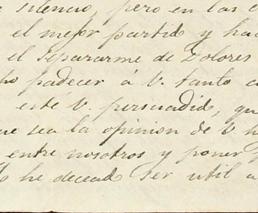 silencio, pero en las c
el mejor partido y hac
el separarme de Dolores
padecer á V. tanto c
este V. persuadido, qu
ue sea la opinion de V. h
entre nosotros y poner
he deseado ser util a